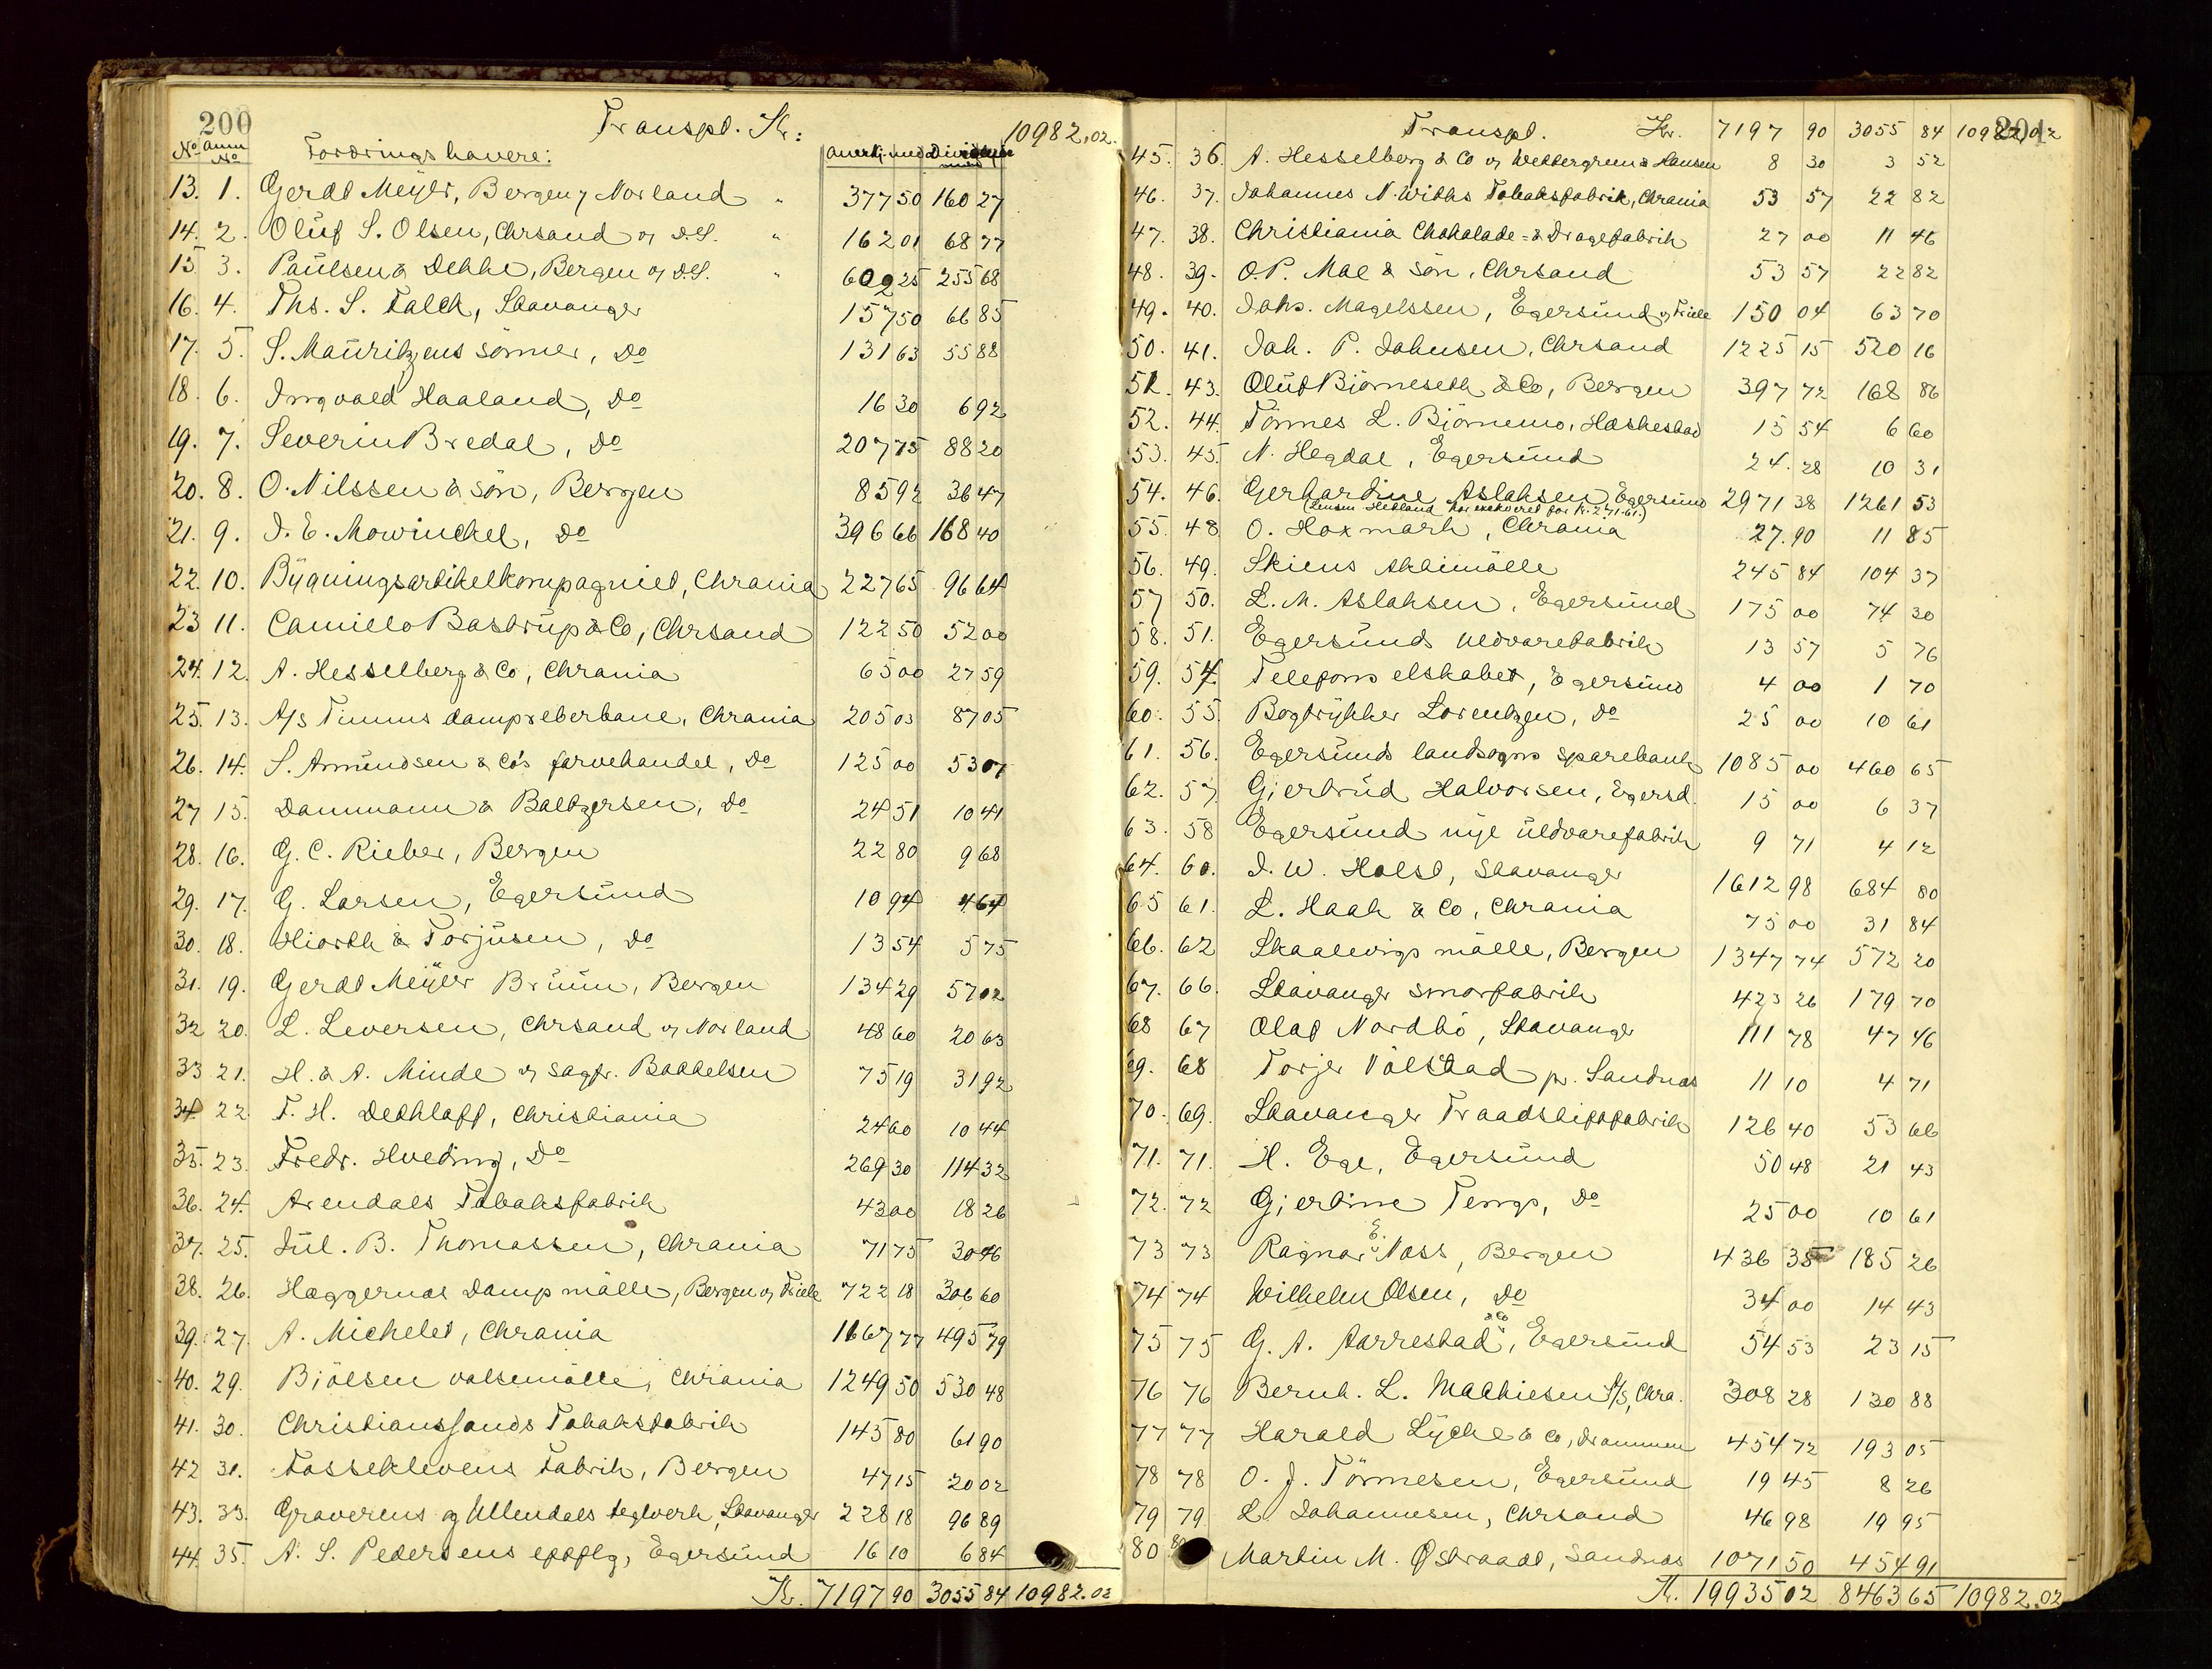 200
Transpt. Kr: 10982.02.
No Anm No Fordringshavere: Anerkj. med Dividende med
13. 1. Gerdt Meyer, Bergen, Norland " 377 50 160 27
14. 2. Oluf S. Olsen, Chrsand og D.S. " 162 01 68 77
15. 3. Paulsen & Dekke, Bergen og D.S. " 602 25 255 68
16. 4. Ths. S. Falck, Stavanger 157 50 66 85
17. 5. S. Mauritzens sønner, Do 131 63 55 88
18. 6. Ingvald Haaland, Do 16 30 6 92
19. 7. Severin Bredal, Do 207 75 88 20
20. 8. O. Nilssen & søn, Bergen 85 92 36 47
21. 9. J. E. Mowinckel, Do 396 66 168 40
22. 10. Bygningsartikelkompagniet, Chrania 227 65 96 64
23 11. Camillo Bastrup & Co, Chrsand 122 50 52 00
24. 12. A. Hesselberg & Co, Chrania 65 00 27 59
25. 13. A/s Timms dampreberbane, Chrania 205 03 87 05
26. 14. S. Amundsen & Co's farvehandel, Do 125 00 53 07
27 15. Dammann & Baltzersen, Do 24 51 10 41
28. 16. G. C. Rieber, Bergen 22 80 9 68
29. 17. G. Larsen, Egersund 10 94 4 64
30. 18. Hiorth & Torjusen, Do 13 54 5 75
31. 19. Gerdt Meyer Bruun, Bergen 134 29 57 02
32 20. L. Leversen, Chrsand og Norland 48 60 20 63
33 21. H. & A. Minde og sagfr. Baddelsen 75 19 31 92
34 22. F. H. Dethloff, Christiania 24 60 10 44
35. 23. Fredr. Hveding, Do 269 30 114 32
36. 24. Arendals Tobaksfabrik 43 00 18 26
37. 25. Jul. B. Thomassen, Chrania 71 75 30 46
38. 26. Hæggernæs Dampmølle, Bergen og Friele 722 18 306 60
39. 27. A. Michelet, Chrania 1167 77 495 79
40. 29. Bjølsen valsemølle, Chrania 1249 50 530 48
41. 30. Christianssands Tobaksfabrik 145 80 61 90
42 31. Fosseklevens Fabrik, Bergen 47 15 20 02
43. 33. Graverens og Ullendals teglverk, Stavanger 228 18 96 89
44. 35. A. S. Pedersens eftflg, Egersund 16 10 6 84
Kr. 7197 90 3055 84 10982.02
201
Transpt. Kr. 7197 90 3055 84 10982,02
45. 36. A. Hesselberg & Co og Wettergreen & Hansen 8 30 3 52
46. 37. Johannes N. Withs Tobaksfabrik, Chrania 53 57 22 82
47. 38. Christiania Chokolade- & Dragefabrik 27 00 11 46
48. 39. O. P. Moe & søn, Chrsand 53 57 22 82
49. 40. Johs. Magelssen, Egersund og Friele 150 04 63 70
50. 41. Joh. P. Johnsen, Chrsand 1225 15 520 16
51. 43. Oluf Bjørneseth & Co, Bergen 397 72 168 86
52. 44. Tønnes L. Bjørnemo, Hæskestad 15 54 6 60
53. 45. N. Hegdal, Egersund 24. 28 10 31
54. 46. Gerhardine Aslaksen, Egersund 2971 38 1261 53
(Hetland har exekveret for kr. 271.61.)
55. 48 O. Hoxmark, Chrania 27. 90 11 85
56. 49. Skiens Aktiemølle 245 84 104 37
57 50. L. M. Aslaksen, Egersund 175 00 74 30
58. 51. Egersunds Uldvarefabrik 13 57 5 76
59. 54. Telefonselskabet, Egersund 4 00 1 70
60. 55. Bogtrykker Lorentzen, Do 25 00 10 61
61. 56. Egersunds landsogns sparebank 1085 00 460 65
62. 57 Gjertrud Halvorsen, Egersd. 15 00 6 37
63. 58 Egersund nye uldvarefabrik 9 71 4 12
64. 60. J. W. Holst, Stavanger 1612 98 684 80
65 61. L. Haak & Co, Chrania 75 00 31 84
66. 62 Skaalevigs mølle, Bergen 1347 74 572 20
67. 66. Stavanger smørfabrik 423 26 179 70
68 67 Olaf Nordbö, Stavanger 111 78 47 46
69. 68 Torjer Vølstad pr. Sandnæs 11 10 4 71
70. 69. Stavanger Traadstiftfabrik 126 40 53 66
71. 71. H. Ege, Egersund 50 48 21 43
72. 72 Gjertine Tengs, Do 25 00 10 61
73 73 Ragnar E. Næss, Bergen 436 35 185 26
74 74 Wilhelm Olsen, Do 34 00 14 43
75 75 G. A. Aarrestad & Co, Egersund 54 53 23 15
76 76 Bernh. L. Mathiesen A/S, Chra. 308 28 130 88
77 77 Harald Lyche & Co, Drammen 454 72 193 05
78 78 O. J. Tönnesen, Egersund 19 45 8 26
79 79 L. Johannesen, Chrsand 46 98 19 95
80 80 Martin M. Østraadt, Sandnæs 1071 50 454 91
Kr. 19935 02 8463 65 10982.02